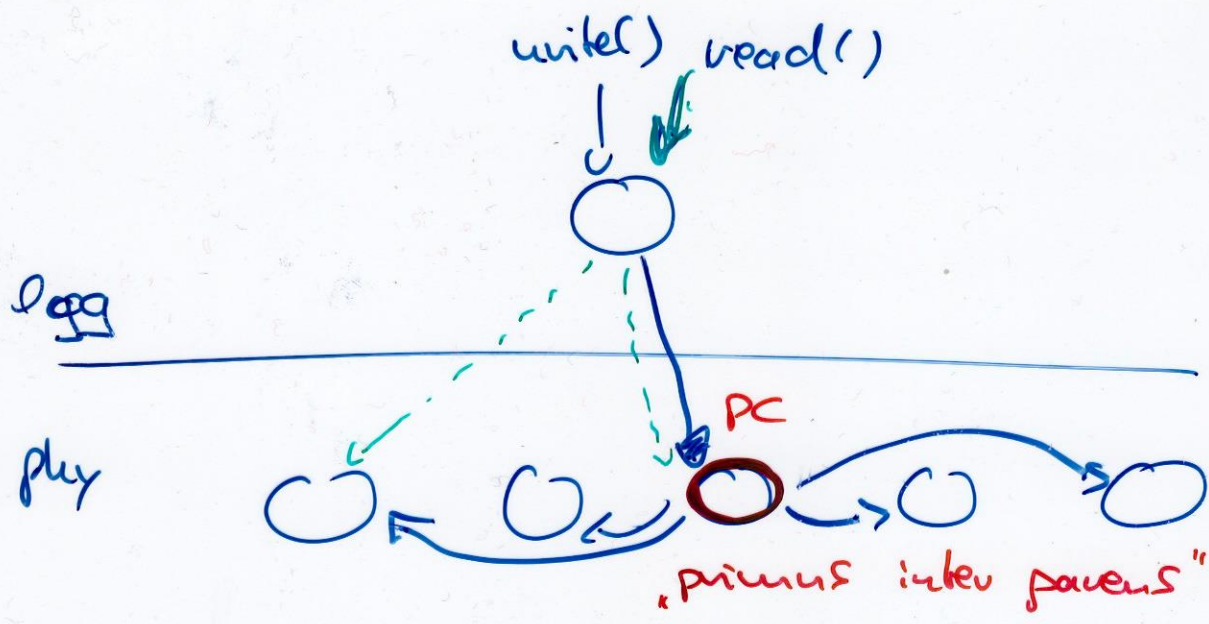 write() read()
PC
phy
„primus inter parens"